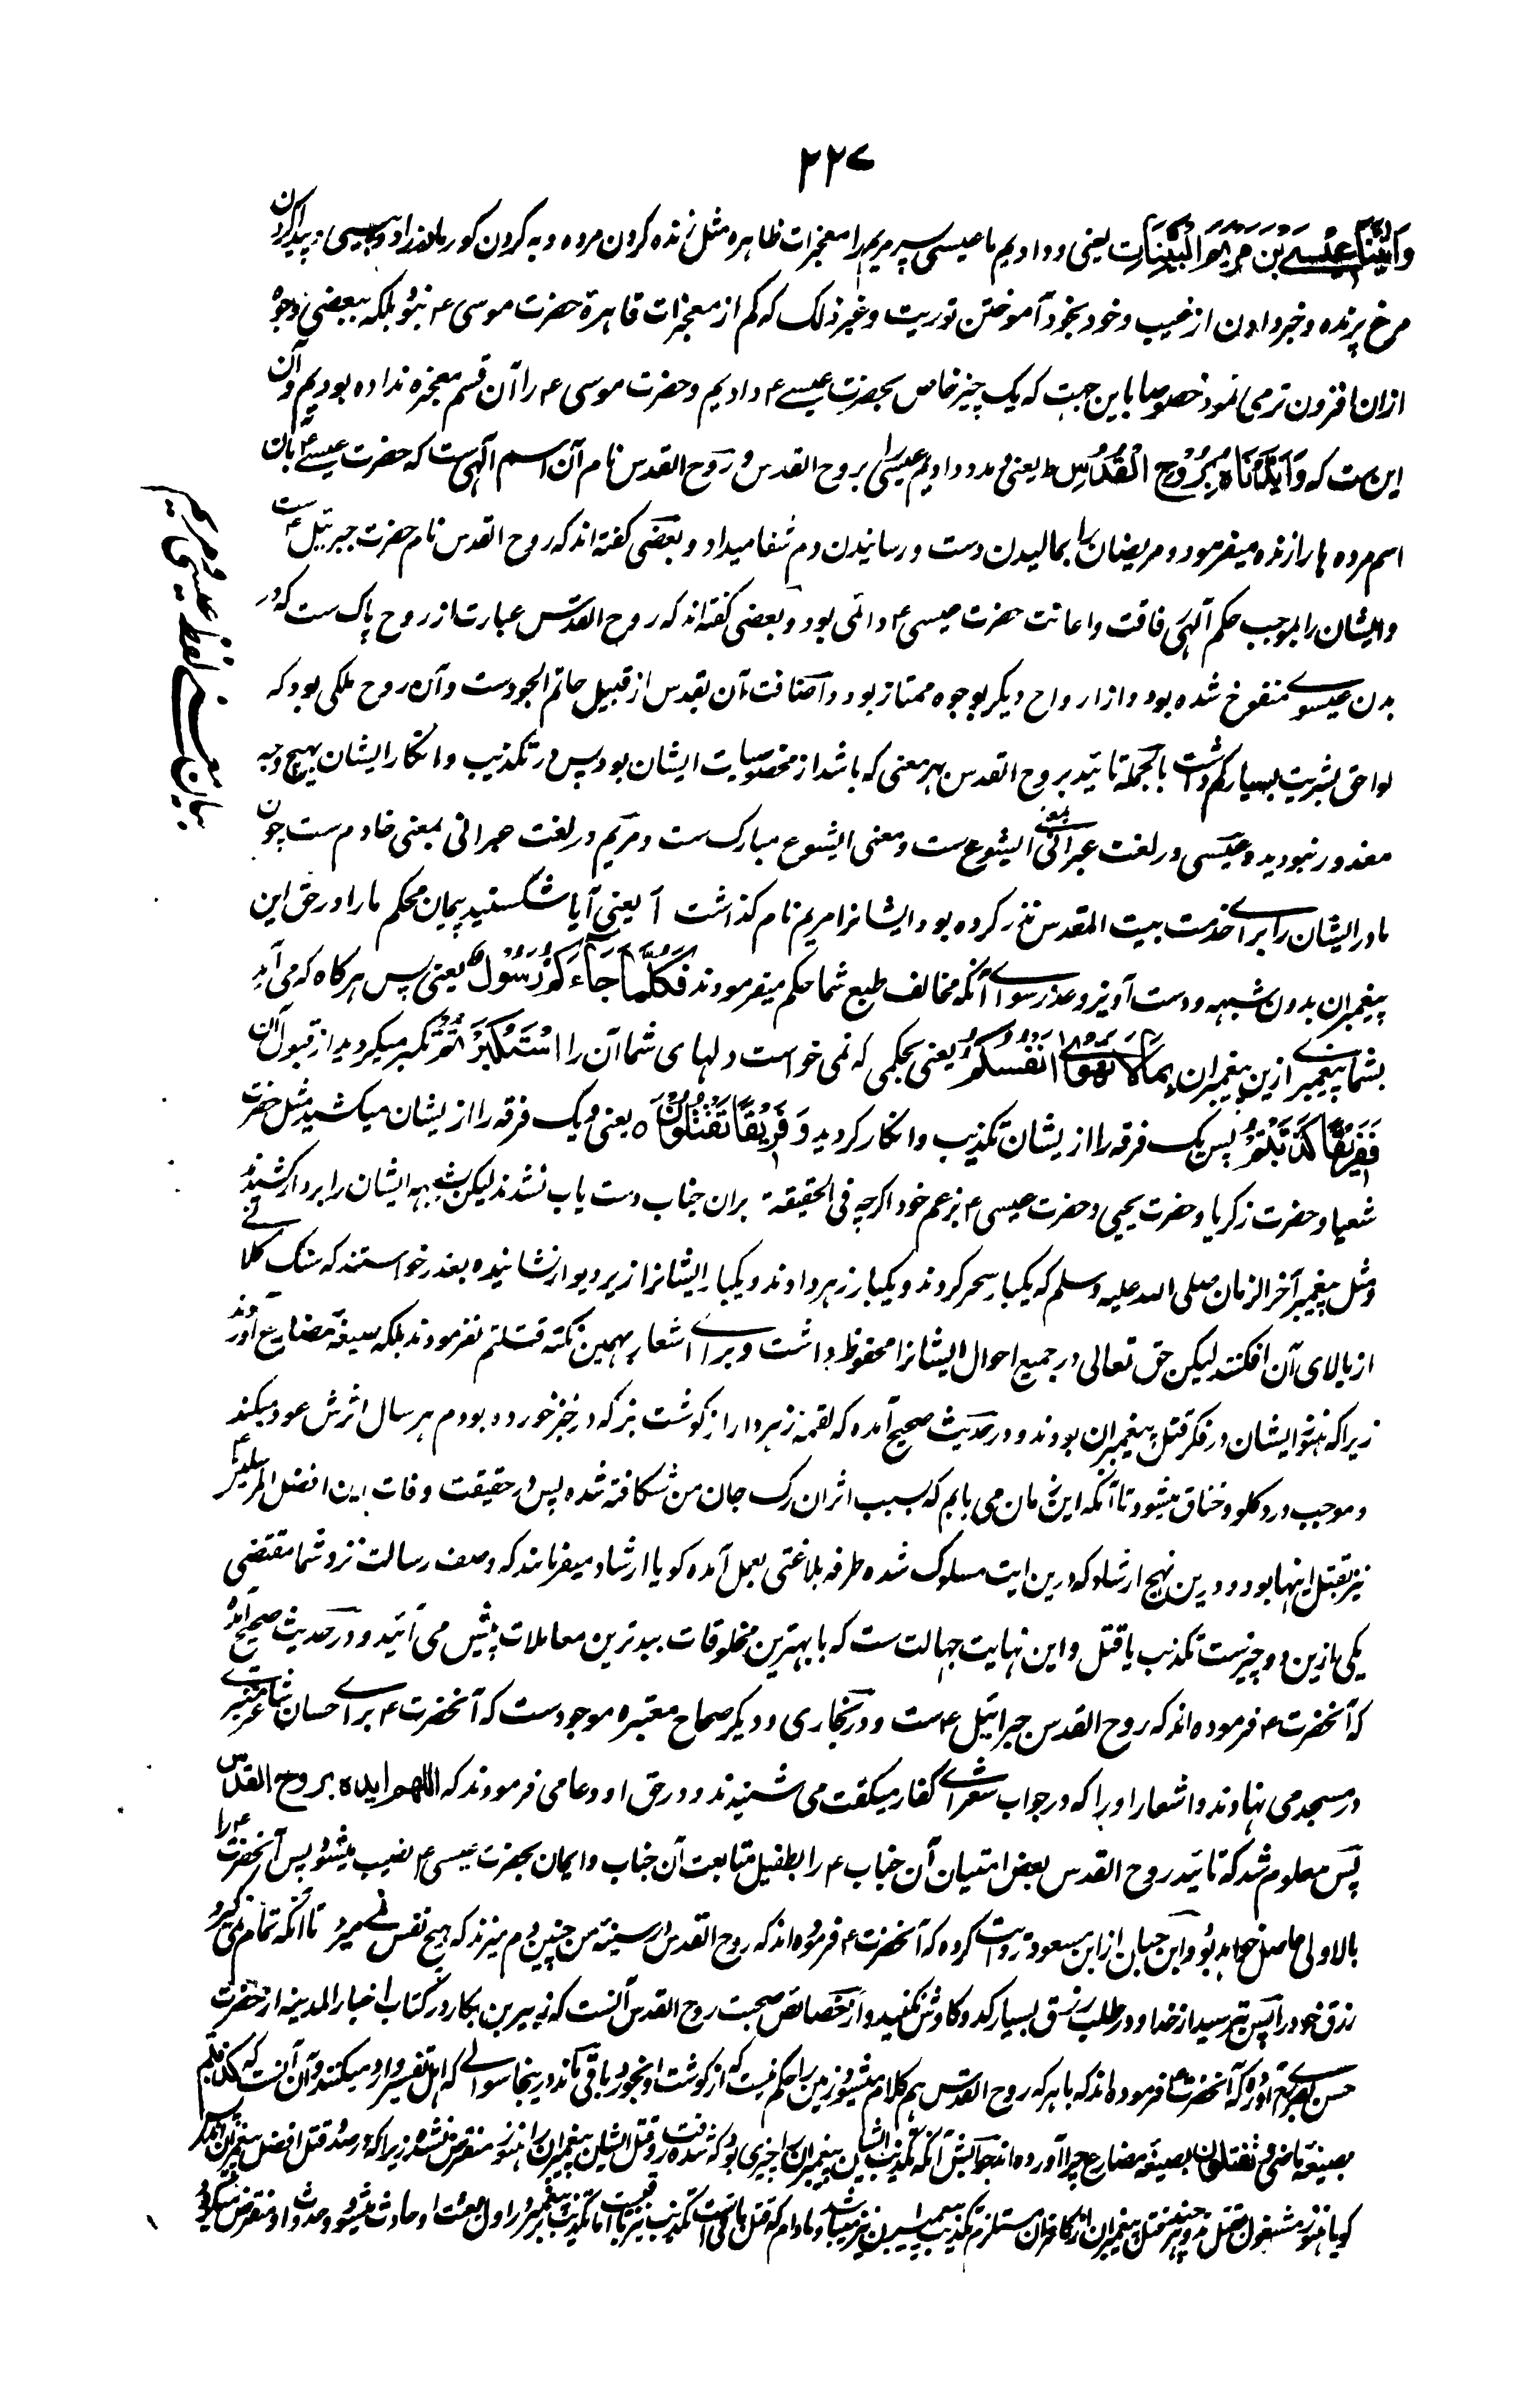 ۲۲۷
وَآتَيْنَا عِيسَى بْنَ مَرْيَمَ الْبَيِّنَاتِ یعنی و دادیم ما عیسی پسر مریم را معجزات ظاهره مثل زنده کردن مرده و به کردن کور مادرزاد و پیسی و پیدا کردن
مرغ پرنده و خبر دادن از غیب و خود بخود آموختن توریت و غیر ذلک که کم از معجزات قاهرة حضرت موسی ۴ نبود بلکه ببعضی وجوه
ازان افزون تر می نمود خصوصا باین جهت که یک چیز خاص بحضرت عیسے ۴ دادیم و حضرت موسی ۴ را آن قسم معجزه نداده بودیم و آن
این ست که وَأَيَّدْنَاهُ بِرُوحِ الْقُدُسِ ط یعنی و مدد دادیم عیسی را بروح القدس و روح القدس نام آن اسم آلهی ست که حضرت عیسے ۴ بان
اسم مرده ها را زنده میفرمود و مریضان را بمالیدن دست و رسانیدن دم شفا میداد و بعضی گفته اند که روح القدس نام حضرت جبرئیل ۴ ست
و ایشان را بموجب حکم آلهی رفاقت و اعانت حضرت عیسی ۴ دائمی بود و بعضی گفته اند که روح القدس عبارت از روح پاک ست که در
بدن عیسوے منفوخ شده بود و از ارواح دیگر بوجوه ممتاز بود و اضافت آن بقدس از قبیل حاتم الجودست و آن روح ملکی بود که
لواحق بشریت بسیار کم داشت بالجمله تائید بروح القدس بهر معنی که باشد از مخصوصیات ایشان بود پس در تکذیب و انکار ایشان بهیچ وجه
معذور نبودید و عیسی در لغت عبرانی بمعنے ایشوع ست و معنی ایشوع مبارک ست و مریم در لغت عبرانی بمعنی خادم ست چون
مادر ایشان را براے خدمت بیت المقدس نذر کرده بود ایشانرا مریم نام گذاشت أ یعنی آیا شکستید پیمان محکم ما را در حق این
پیغمبران بدون شبهه و دست آویز و عذر سواے آنکه مخالف طبع شما حکم میفرمودند فَكُلَّمَا جَاءَكُمْ رَسُولٌ یعنی پس هرگاه که می آمد
بشما پیغمبرے ازین پیغمبران بِمَا لَا تَهْوَى أَنْفُسُكُمُ یعنی بحکمی که نمی خواست دلهای شما آن را اسْتَكْبَرْتُمْ تکبر میکردید از قبول آن
فَفَرِيقًا كَذَّبْتُمْ پس یک فرقه را از یشان تکذیب و انکار کردید وَفَرِيقًا تَقْتُلُونَ ه یعنی و یک فرقه را از یشان میکشید مثل حضرت
شعیا و حضرت زکریا و حضرت یحیی و حضرت عیسی ۴ بزعم خود اگرچه فی الحقیقة بران جناب دست یاب نشدند لیکن شبیهه ایشان را بردار کشیدند
و مثل پیغمبر آخر الزمان صلی الله علیه وسلم که یکبار سحر کردند و یکبار زهر دادند و یکبار ایشانرا زیر دیوار نشانیده بغدر خواستند که سنگ کلانے
از بالای آن افکنند لیکن حق تعالی در جمیع احوال ایشانرا محفوظ داشت و براے اشعار بهمین نکته قتلتم نفرمودند بلکه صیغهٔ مضارع آوردند
زیرا که هنوز ایشان در فکر قتل پیغمبران بودند و در حدیث صحیح آمده که لقمه زهردار از گوشت بز که در خیبر خورده بودم هر سال اثرش عود میکند
و موجب درد گلو و خناق میشود تا آنکه این زمان می یابم که بسبب اثر ان رگ جان من شگافته شده پس در حقیقت وفات این افضل المرسلین ۴
نیز بقتل اینها بود و درین نهج ارشاد که درین ایت مسلوک شده طرفه بلاغتی بعمل آمده گویا ارشاد میفرمانند که وصف رسالت نزد شما مقتضی
یکی ازین دو چیزست تکذیب یا قتل و این نهایت جهالت ست که با بهترین مخلوقات ببدترین معاملات پیش می آئید و در حدیث صحیح آمده
که آنحضرت ۴ فرموده اند که روح القدس جبرائیل ۴ ست و در بخاری و دیگر صحاح معتبره موجودست که آنحضرت ۴ براے حسان شاعر منبرے
در مسجد می نهادند و اشعار او را که در جواب شعراے کفار میگفت می شنیدند و در حق او دعا می فرمودند که اللهم ایده بروح القدس
پس معلوم شد که تائید روح القدس بعض امتیان آن جناب ۴ را بطفیل متابعت آن جناب و ایمان بحضرت عیسی ۴ نصیب میشود پس آنحضرت ۴ را
بالاولی حاصل خواهد بود و ابن حبان از ابن مسعود روایت کرده که آنحضرت ۴ فرموده اند که روح القدس در سینهٔ من چنین دم میزند که هیچ نفس نے میرد تا آنکه تمام می گیرد
رزق خود را پس بترسید از خدا و در طلب رزق بسیار کد و کاوش نکنید و از خصائص صحبت روح القدس آنست که زبیر بن بکار در کتاب اخبار المدینه از حضرت
حسن بصرے آورده که آنحضرت ۴ فرموده اند که با هر که روح القدس هم کلام میشود زمین را حکم نیست که از گوشت او بخورد باقی ماند درینجا سوالے که اهل تفسیر وارد میکنند و آن آنست که کذبتم
بصیغهٔ ماضی و تقتلون بصیغهٔ مضارع چرا آورده اند جوابش آنکه تکذیب ایشان پیغمبران را چیزی بود که شده رفت و قتل ایشان پیغمبران را هنوز منقرض نشده زیرا که در صدد قتل افضل پیغمبران اند
گویا هنوز مشغول بقتل و پیغمبران مستلزم تکذیب و مادام که قتل باقی ست تکذیب نیز باقی ست در اول بعثت او حادث میشود و منقرض میگردد
بیان معنے لفظ عیسیٰ و مریم